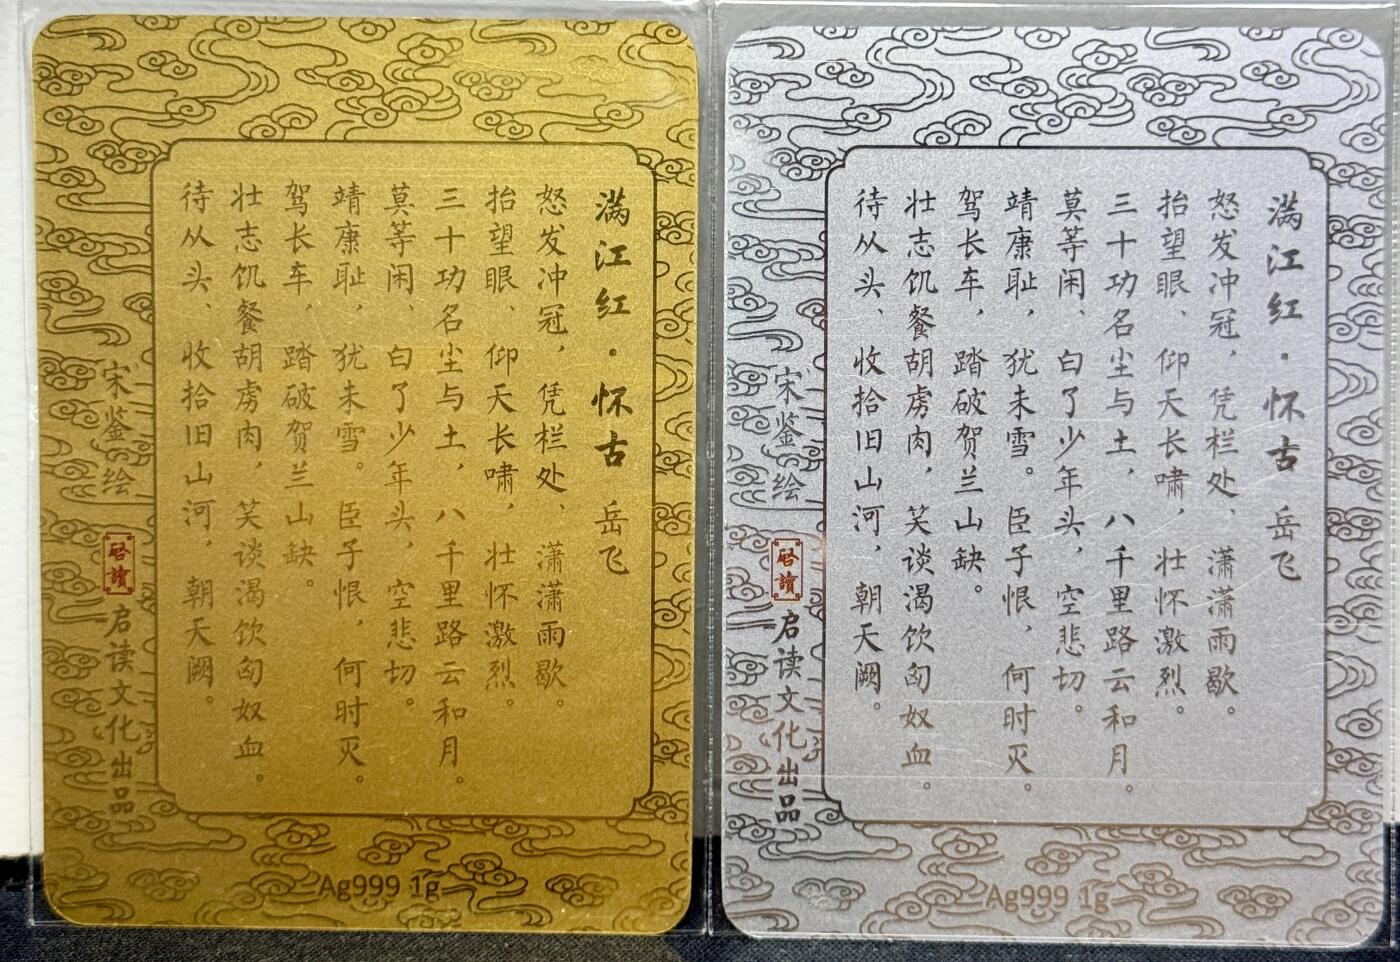 满江红·怀古 岳飞
怒发冲冠，凭栏处、潇潇雨歇。
抬望眼、仰天长啸，壮怀激烈。
三十功名尘与土，八千里路云和月。
莫等闲、白了少年头，空悲切。
靖康耻，犹未雪。臣子恨，何时灭。
驾长车，踏破贺兰山缺。
壮志饥餐胡虏肉，笑谈渴饮匈奴血。
待从头、收拾旧山河，朝天阙。
宋鉴绘 启讀 启读文化出品
Ag999 1g
满江红·怀古 岳飞
怒发冲冠，凭栏处、潇潇雨歇。
抬望眼、仰天长啸，壮怀激烈。
三十功名尘与土，八千里路云和月。
莫等闲、白了少年头，空悲切。
靖康耻，犹未雪。臣子恨，何时灭。
驾长车，踏破贺兰山缺。
壮志饥餐胡虏肉，笑谈渴饮匈奴血。
待从头、收拾旧山河，朝天阙。
宋鉴绘 启讀 启读文化出品
Ag999 1g